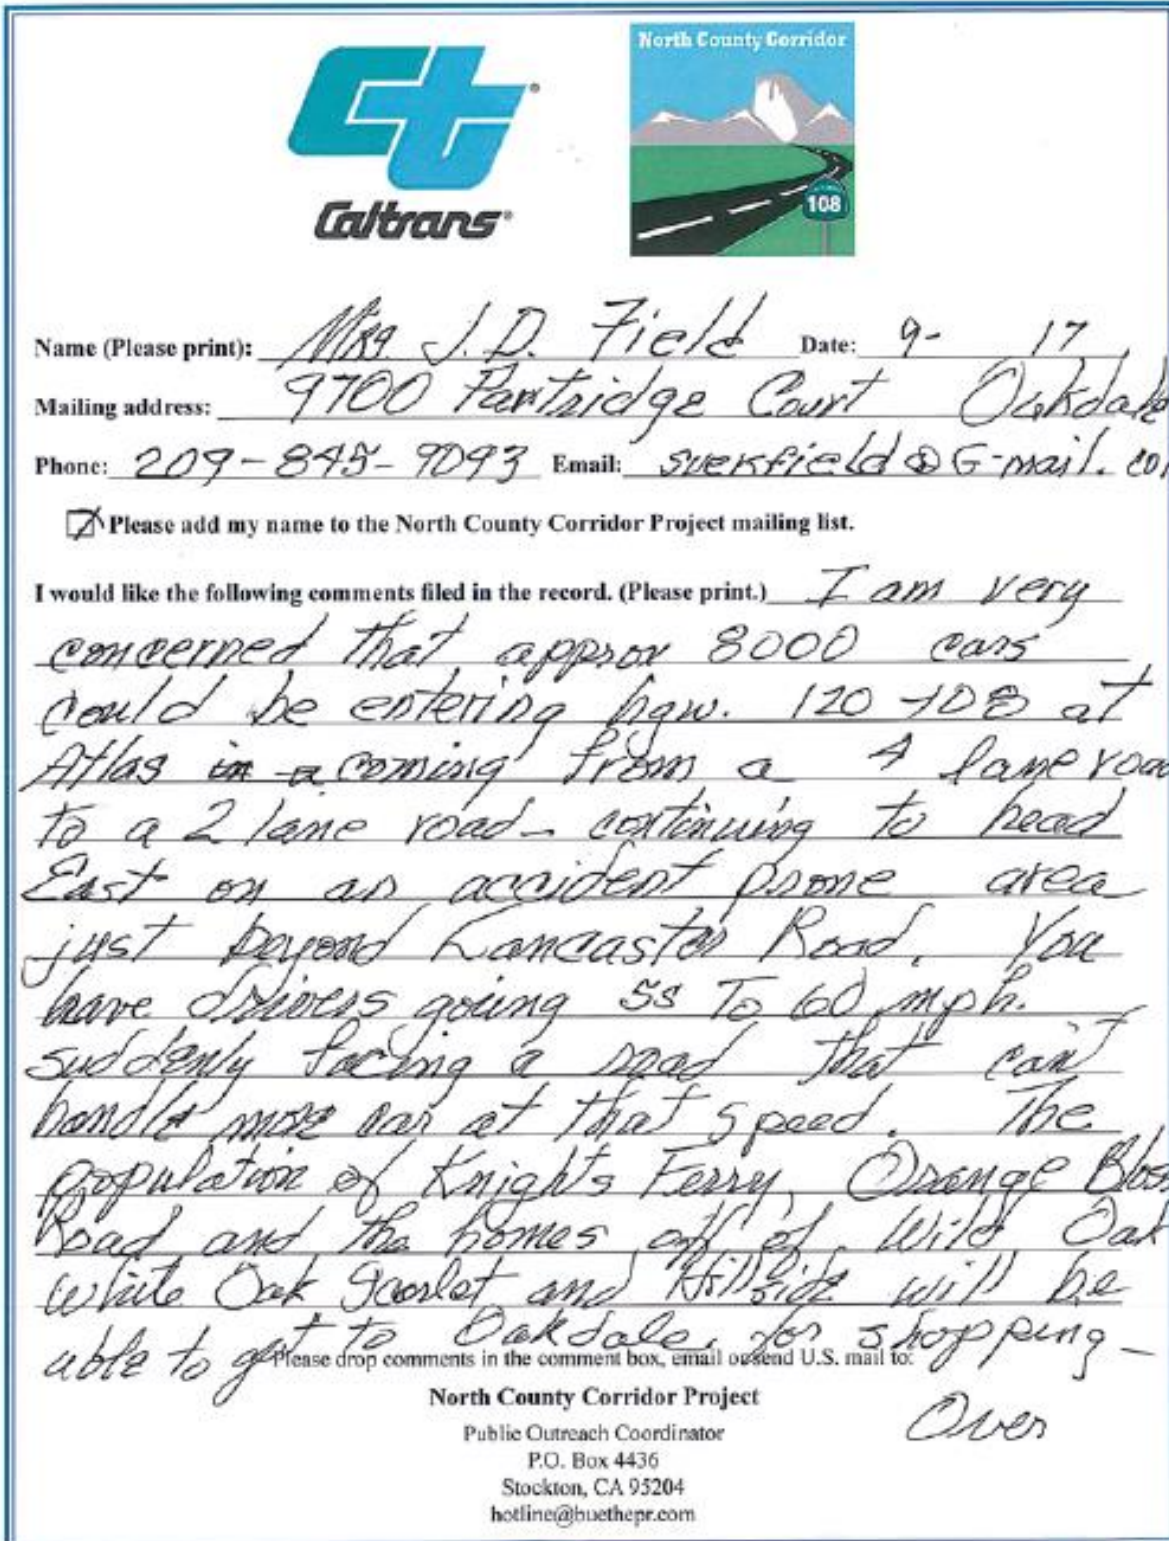 Caltrans
North County Corridor
108
Name (Please print): Mrs J. D. Field Date: 9- 17
Mailing address: 9700 Partridge Court Oakdale
Phone: 209-845-9093 Email: suekfield@G-mail.co
Please add my name to the North County Corridor Project mailing list.
I would like the following comments filed in the record. (Please print.) I am very
concerned that approx 8000 cars
could be entering hgw. 120-108 at
Atlas in a coming from a 4 lane road
to a 2 lane road - continuing to head
East on an accident prone area
just beyond Lancaster Road. You
have drivers going 55 To 60 mph.
suddenly facing a road that can't
handle more car at that speed. The
population of Knights Ferry, Orange Blos
Road and the homes off of Wild Oak
White Oak Scarlet and Hillside will be
able to get to Oakdale, for shopping -
Please drop comments in the comment box, email or send U.S. mail to:
North County Corridor Project
Over
Public Outreach Coordinator
P.O. Box 4436
Stockton, CA 95204
hotline@buethepr.com